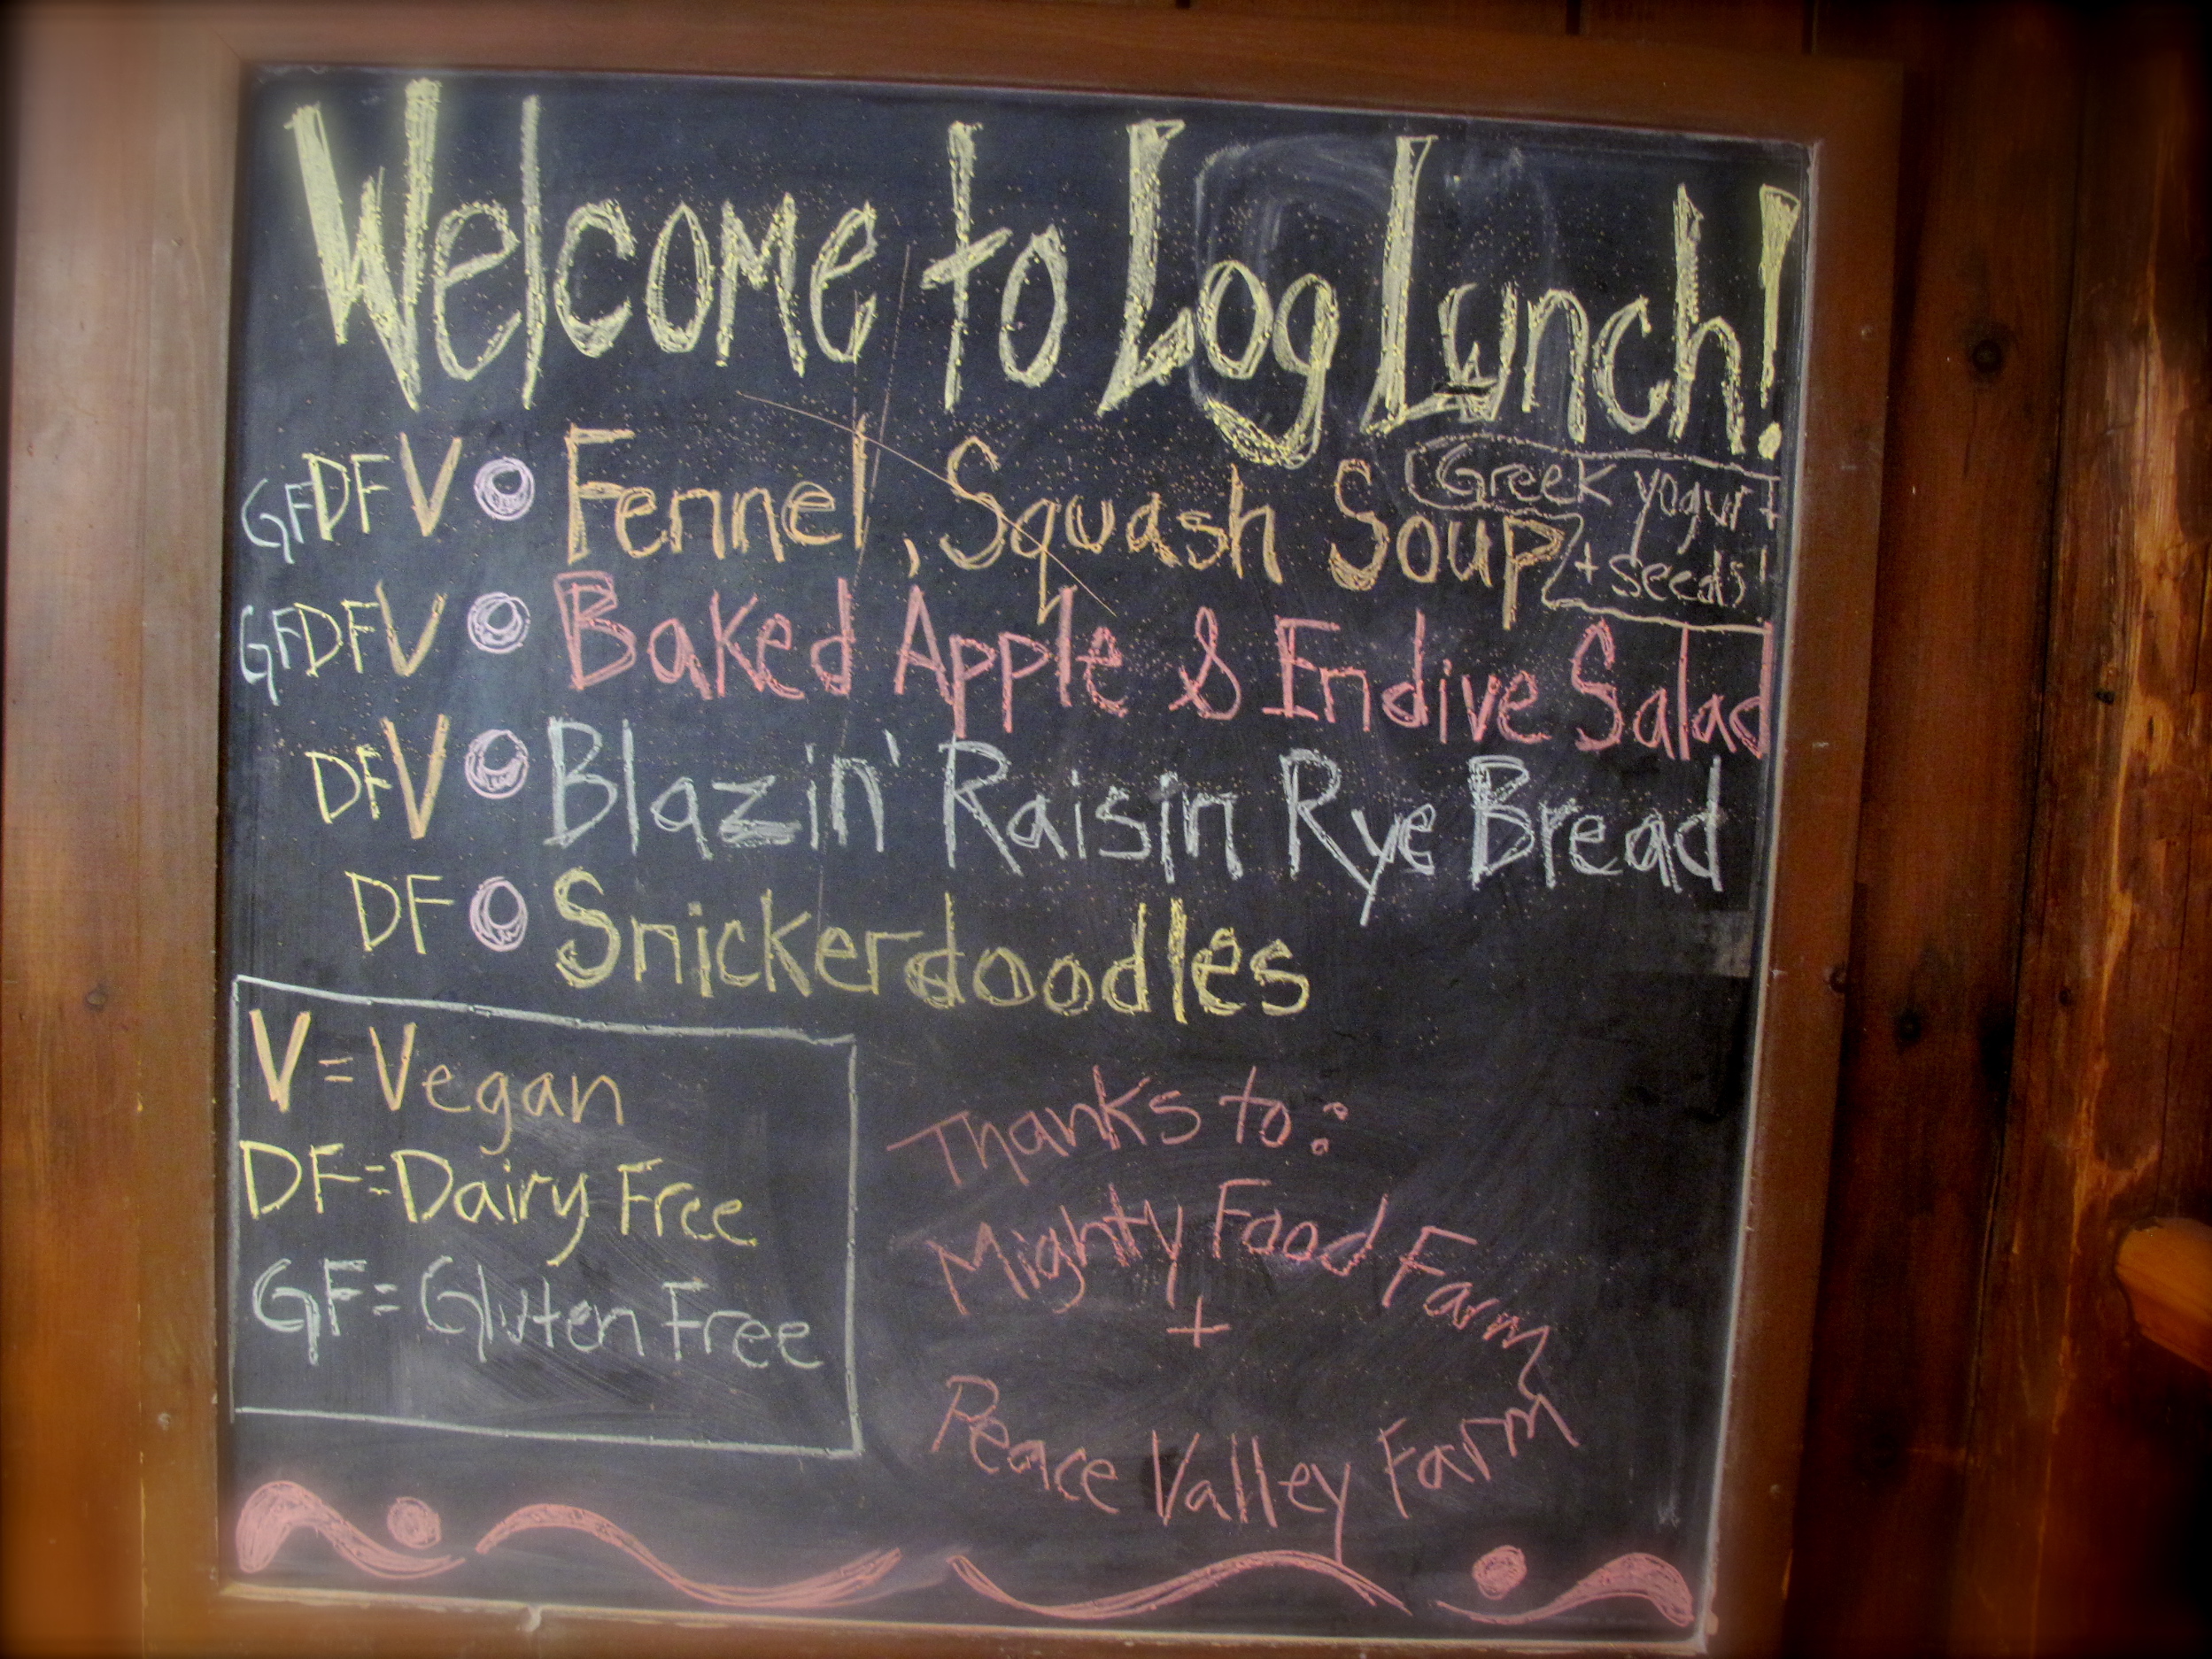 Welcome to Log Lunch!
GF DF V Fennel, Squash Soup
Greek yogurt
+ seeds!
GF DF V Baked Apple & Endive Salad
DF V Blazin' Raisin Rye Bread
DF Snickerdoodles
V = Vegan
DF = Dairy Free
GF = Gluten Free
Thanks to:
Mighty Food Farm
+
Peace Valley Farm